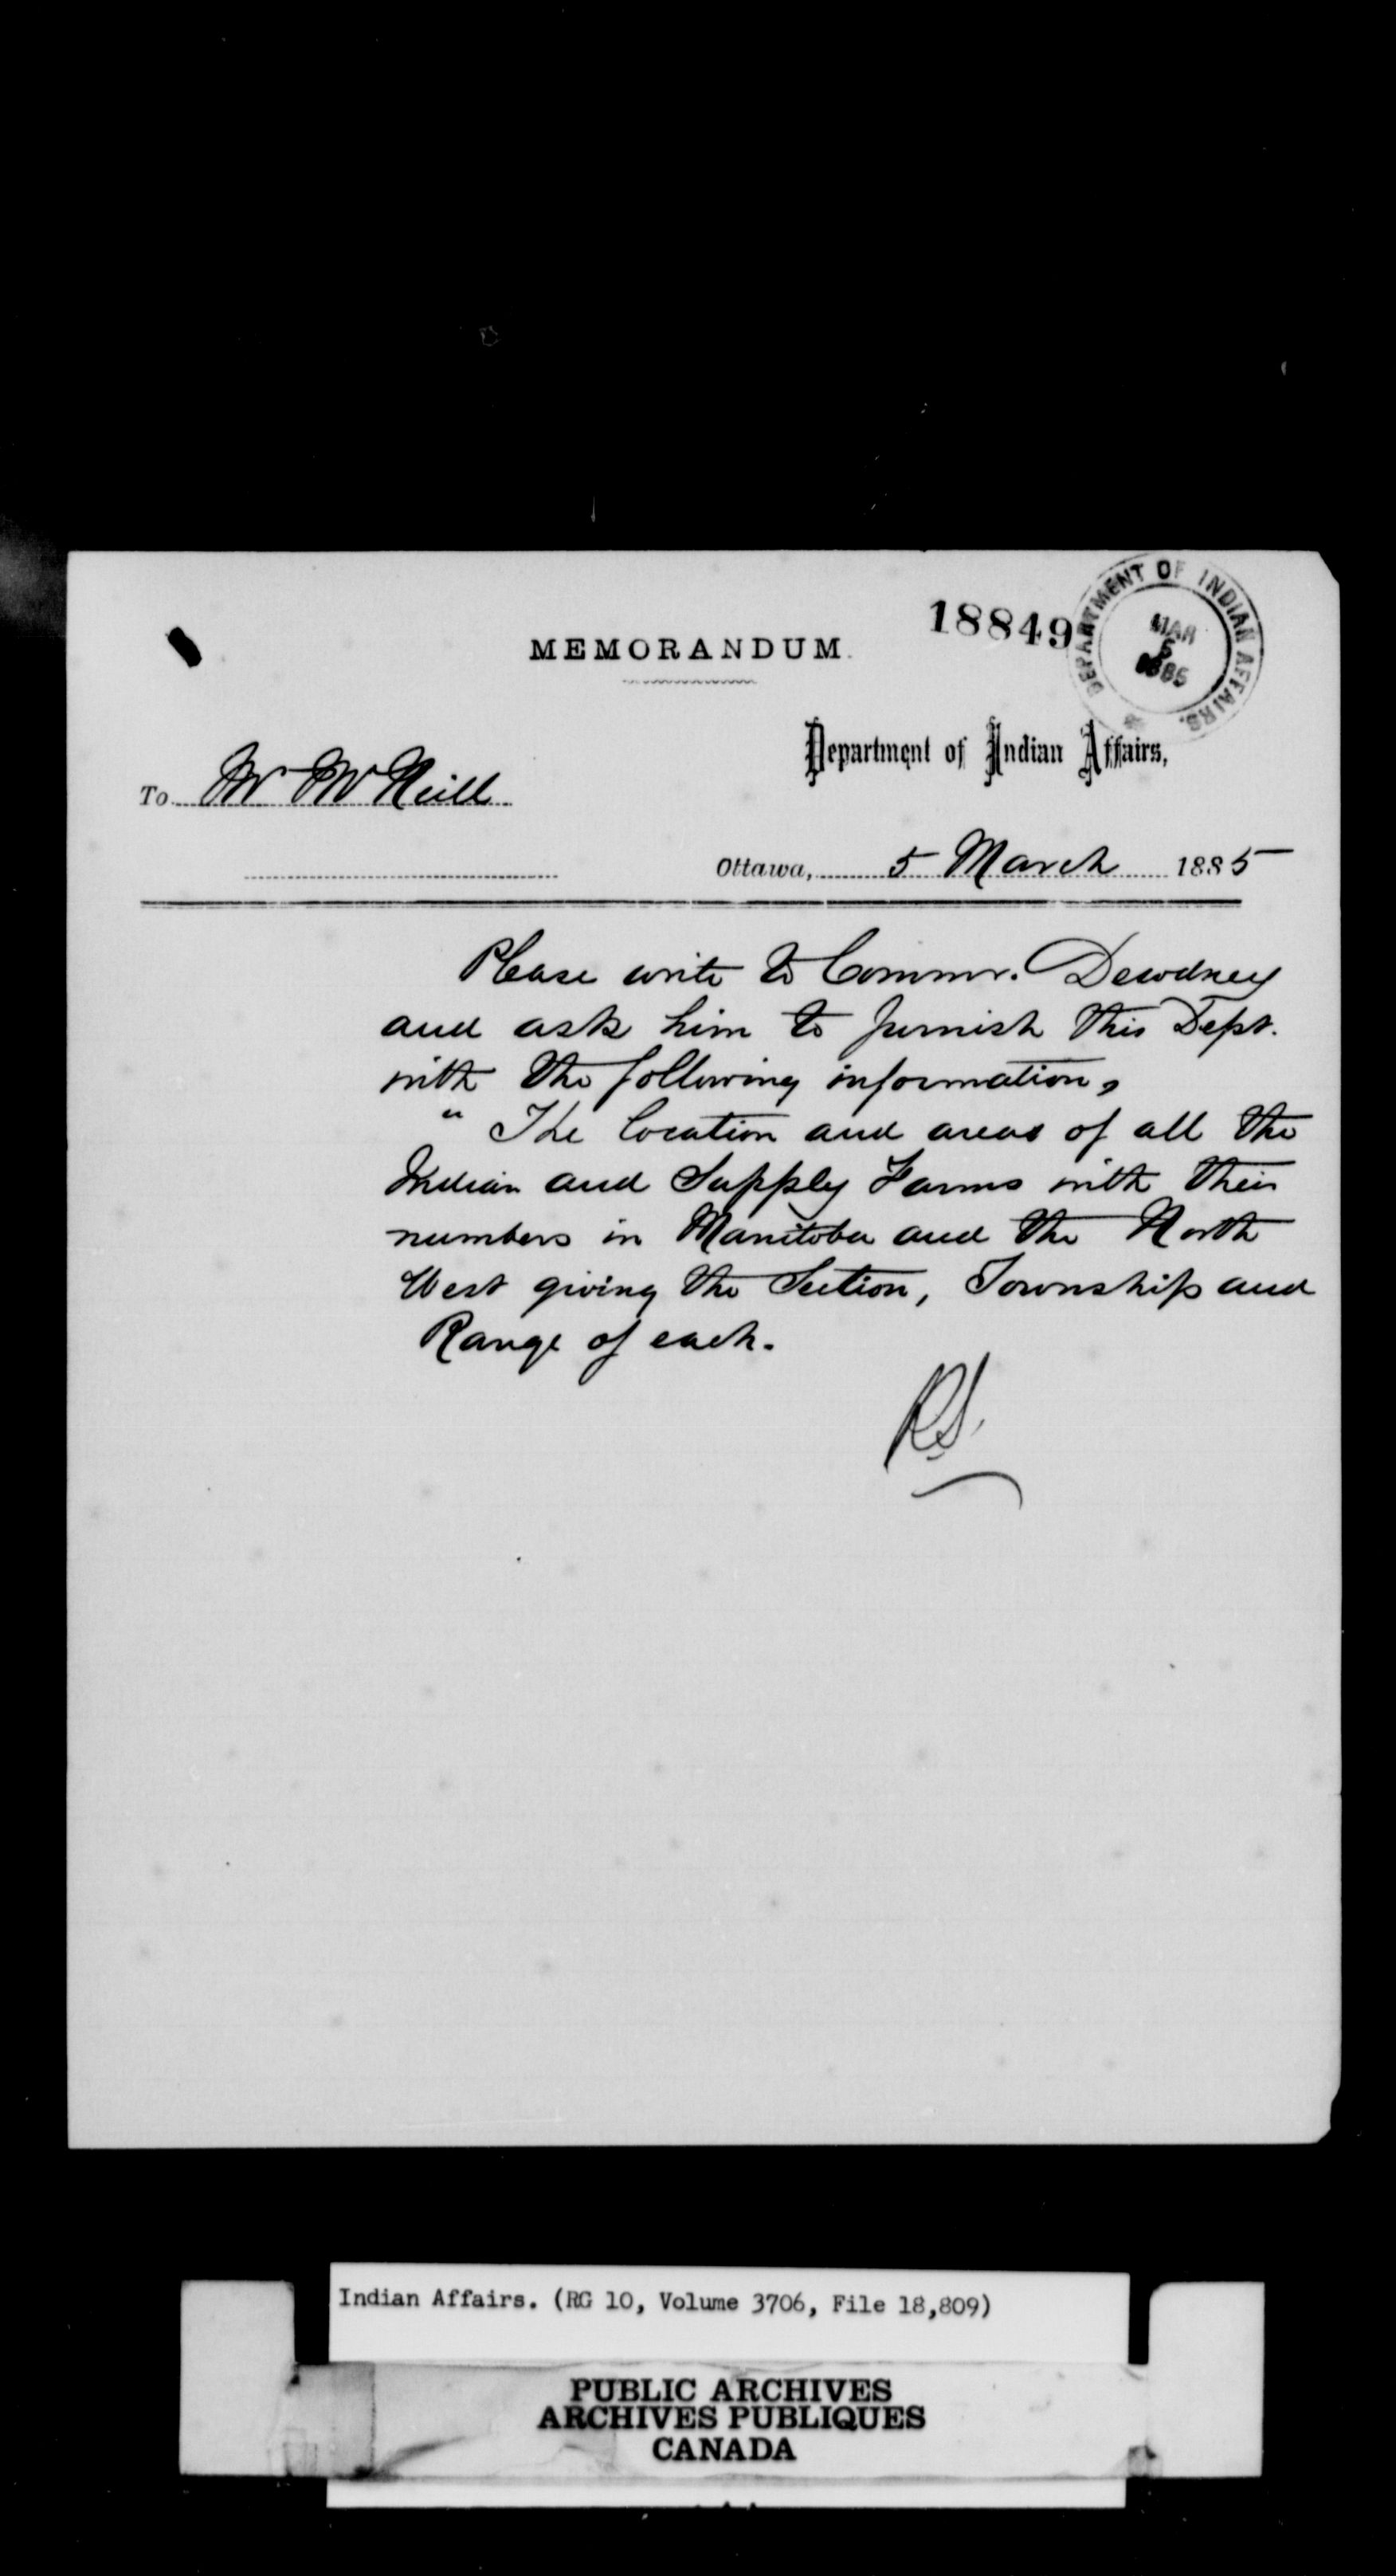 18849
DEPARTMENT OF INDIAN AFFAIRS.
MAR
5
1885
MEMORANDUM.
Department of Indian Affairs,
To Mr McNeill
Ottawa, 5 March 1885
Please write to Commr. Dewdney
and ask him to furnish this Dept.
with the following information,
" The location and areas of all the
Indian and Supply Farms with their
numbers in Manitoba and the North
West giving the Section, Township and
Range of each.
RS.
Indian Affairs. (RG 10, Volume 3706, File 18,809)
PUBLIC ARCHIVES
ARCHIVES PUBLIQUES
CANADA